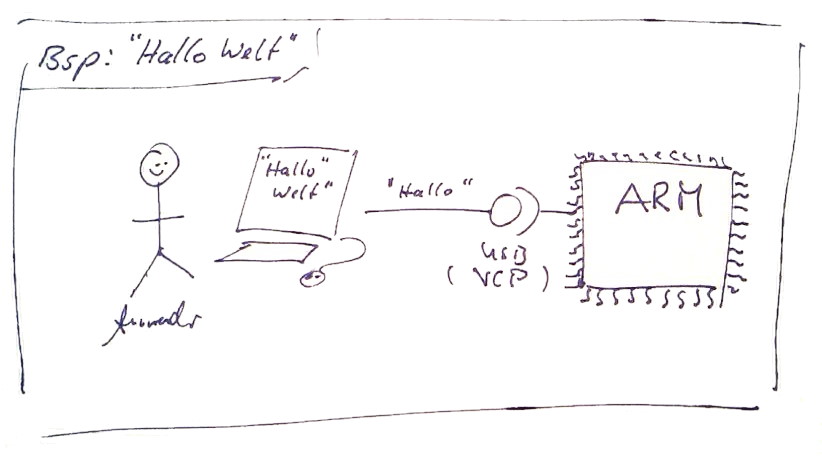 Bsp: "Hallo Welt"
"Hallo"
Welt"
"Hallo"
ARM
USB
(VCP)
Anwender